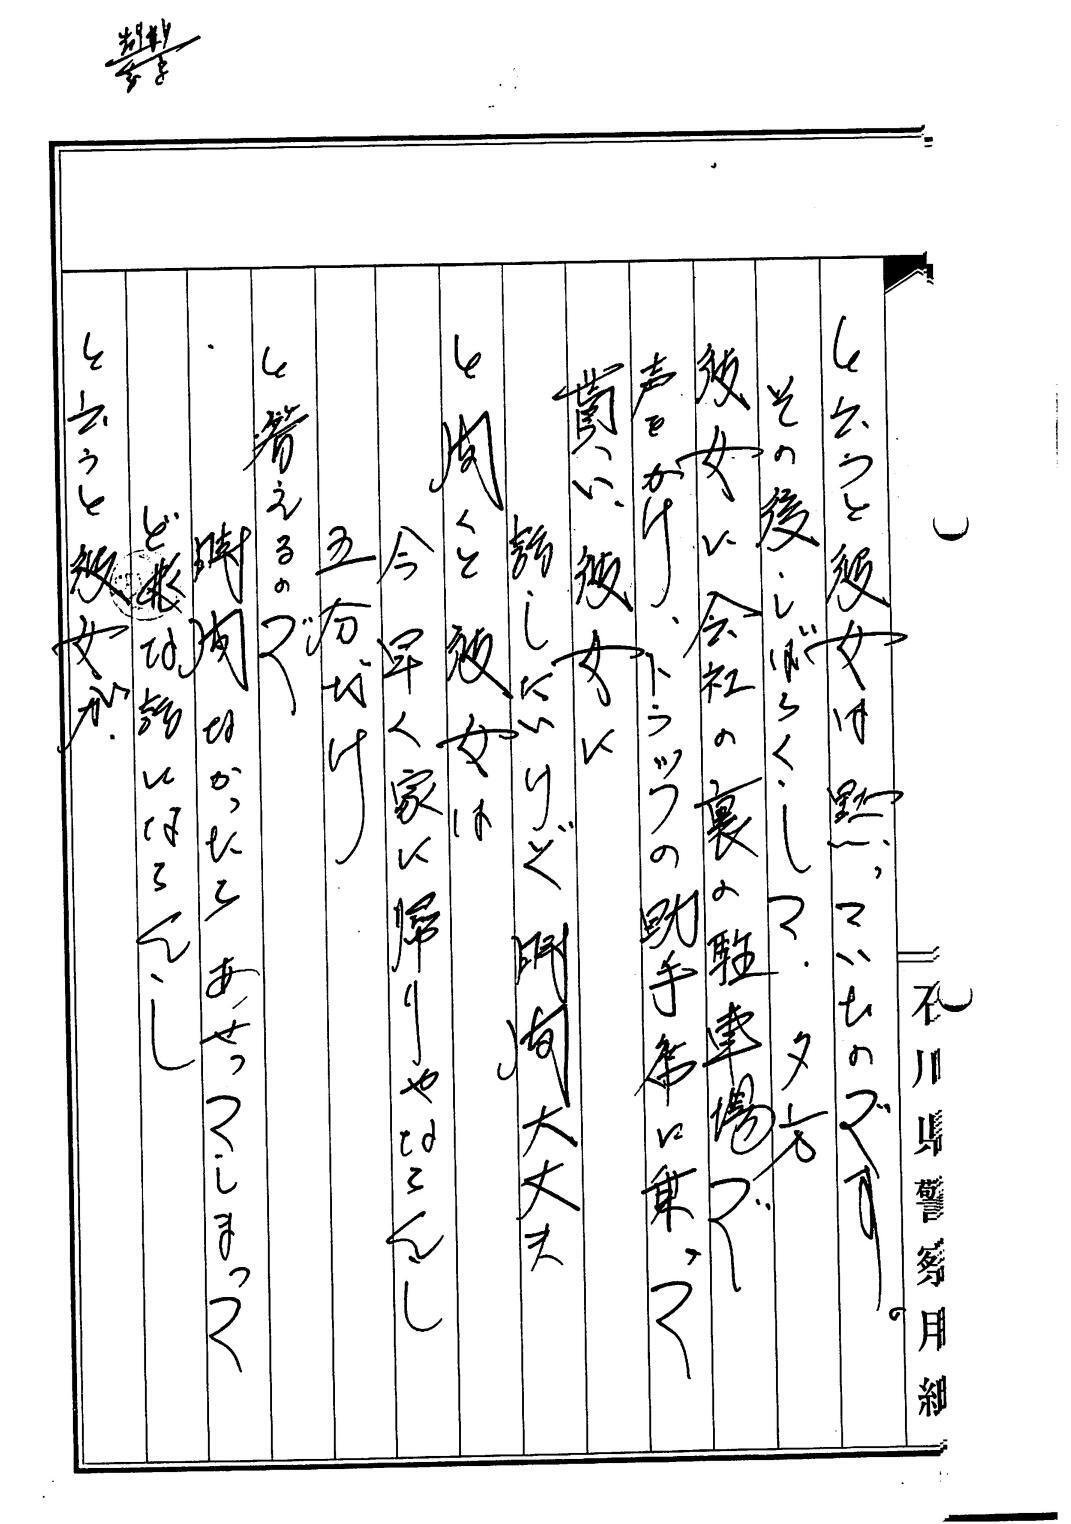 と云うと彼女は黙っていたのです。
その後、しばらくして、夕方
彼女に会社の裏の駐車場で
声をかけ、トラックの助手席に乗って
貰い、彼女に
話したいけど時間大丈夫
と聞くと彼女は
今日早く家に帰りゃならんし
五分だけ
と答えるので
時間なかったらあせってしまって
どな話にならんし
と云うと彼女が、
石川県警察用紙